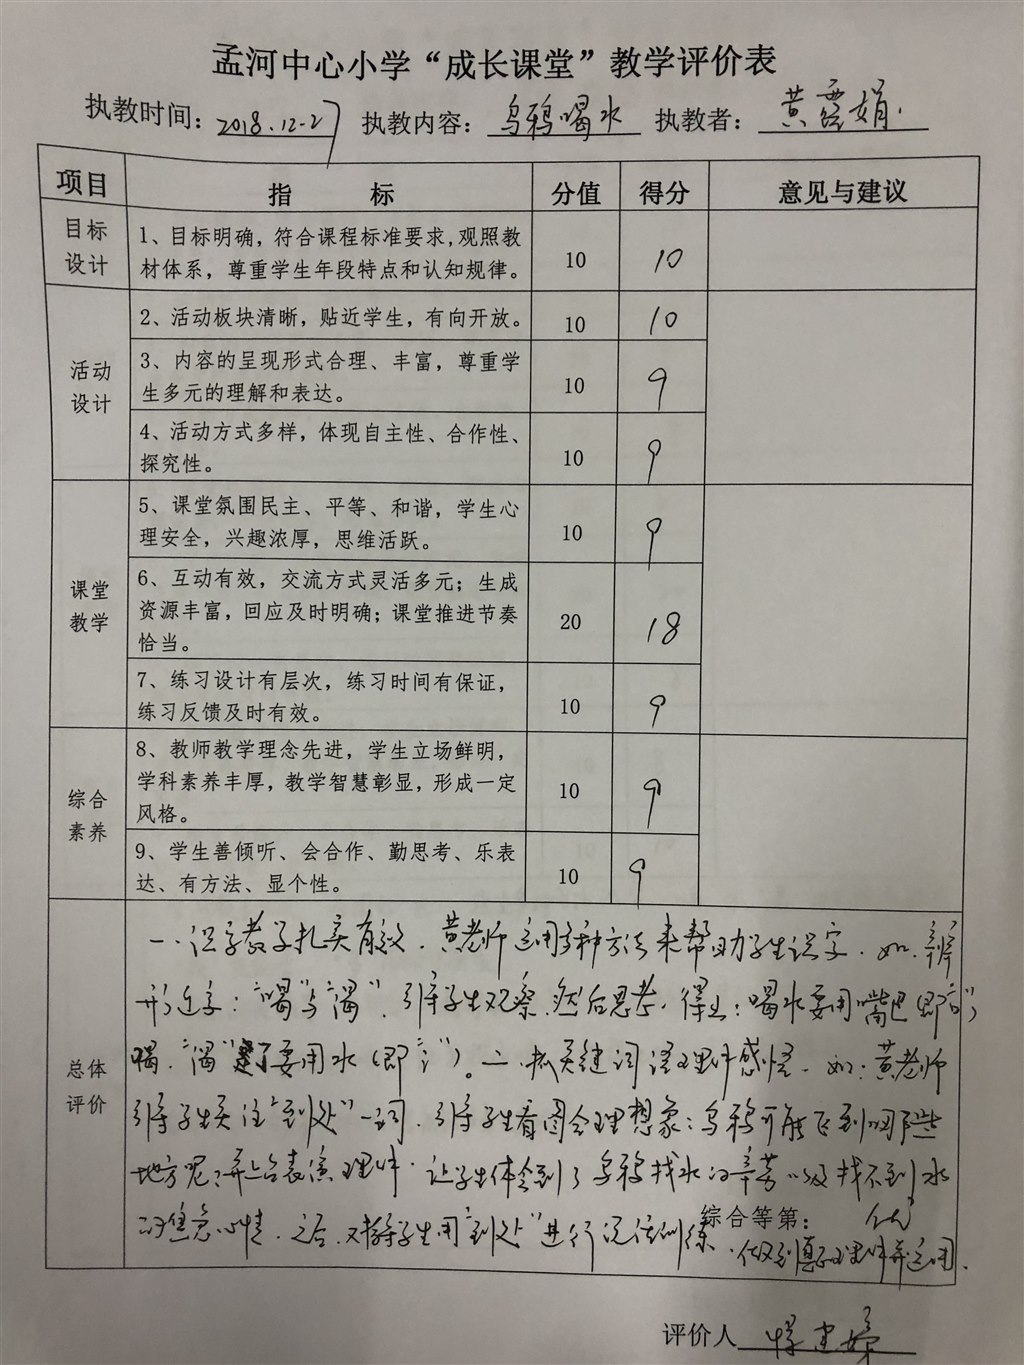 孟河中心小学“成长课堂”教学评价表
执教时间：2018.12-27 执教内容：乌鸦喝水 执教者：黄霞娟
项目 指 标 分值 得分 意见与建议
目标
设计
1、目标明确，符合课程标准要求,观照教
材体系，尊重学生年段特点和认知规律。
10 10
活动
设计
2、活动板块清晰，贴近学生，有向开放。
10 10
3、内容的呈现形式合理、丰富，尊重学
生多元的理解和表达。
10 9
4、活动方式多样，体现自主性、合作性、
探究性。
10 9
课堂
教学
5、课堂氛围民主、平等、和谐，学生心
理安全，兴趣浓厚，思维活跃。
10 9
6、互动有效，交流方式灵活多元；生成
资源丰富，回应及时明确；课堂推进节奏
恰当。
20 18
7、练习设计有层次，练习时间有保证，
练习反馈及时有效。
10 9
综合
素养
8、教师教学理念先进，学生立场鲜明，
学科素养丰厚，教学智慧彰显，形成一定
风格。
10 9
9、学生善倾听、会合作、勤思考、乐表
达、有方法、显个性。
10 9
总体
评价
一、识字教学扎实有效．黄老师运用多种方法来帮助学生识字．如．辨
形近字：“喝”与“渴”．引导学生观察．然后思考，得出：喝水要用嘴巴（即“口”）
喝．“渴”了要用水（即“氵”）。二、抓关键词语理解感悟．如：黄老师
引导学生关注“到处”一词．引导学生看图合理想象：乌鸦可能飞到哪些
地方呢？并上台表演理解．让学生体会到了乌鸦找水的辛劳以及找不到水
的焦急心情．之后．又指导学生用“到处”进行说话训练．做到真正理解并运用．
综合等第： 优
评价人 恽建